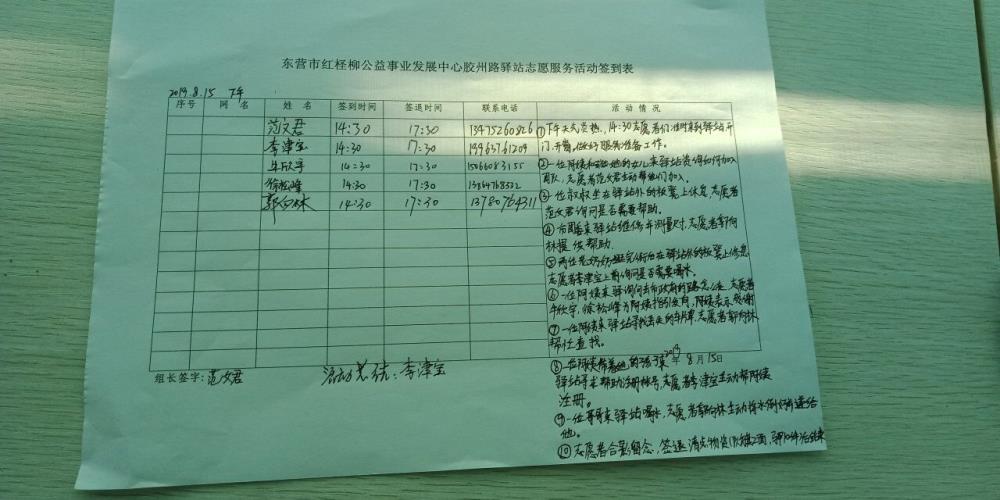 东营市红柽柳公益事业发展中心胶州路驿站志愿服务活动签到表
2019.8.15 下午
序号 网名 姓名 签到时间 签退时间 联系电话 活动情况
范文君 14:30 17:30 13475260826
李津宝 14:30 17:30 19963761209
牟欣宇 14:30 17:30 15066083155
徐松峰 14:30 17:30 13864768532
郭向林 14:30 17:30 13780764311
①下午天气炎热,14:30志愿者们准时来到驿站开
门、开窗,做好服务准备工作。
②一位阿姨和她的女儿来驿站咨询如何加入
团队,志愿者范文君主动帮他们加入。
③一位叔叔坐在驿站外的板凳上休息,志愿者
范文君询问是否需要帮助。
④来驿站维修并测量尺寸,志愿者郭向
林提供帮助。
⑤两位老奶奶在驿站外的板凳上休息,
志愿者李津宝上前询问是否需要喝水。
⑥一位阿姨来驿站询问去市政府的路怎么走,志愿者
牟欣宇、徐松峰为阿姨指引方向,阿姨表示感谢
⑦一位阿姨来驿站寻找丢失的,志愿者郭向林
帮忙查找。
组长签字:范文君 活动总结:李津宝 2019年8月15日
⑧一位阿姨带着她的孩子来
驿站寻求帮助注册帐号,志愿者李津宝主动帮阿姨
注册。
⑨一位哥哥来驿站喝水,志愿者郭向林主动将水倒好并递给
他。
⑩志愿者合影留念,签退,清点物资,结束